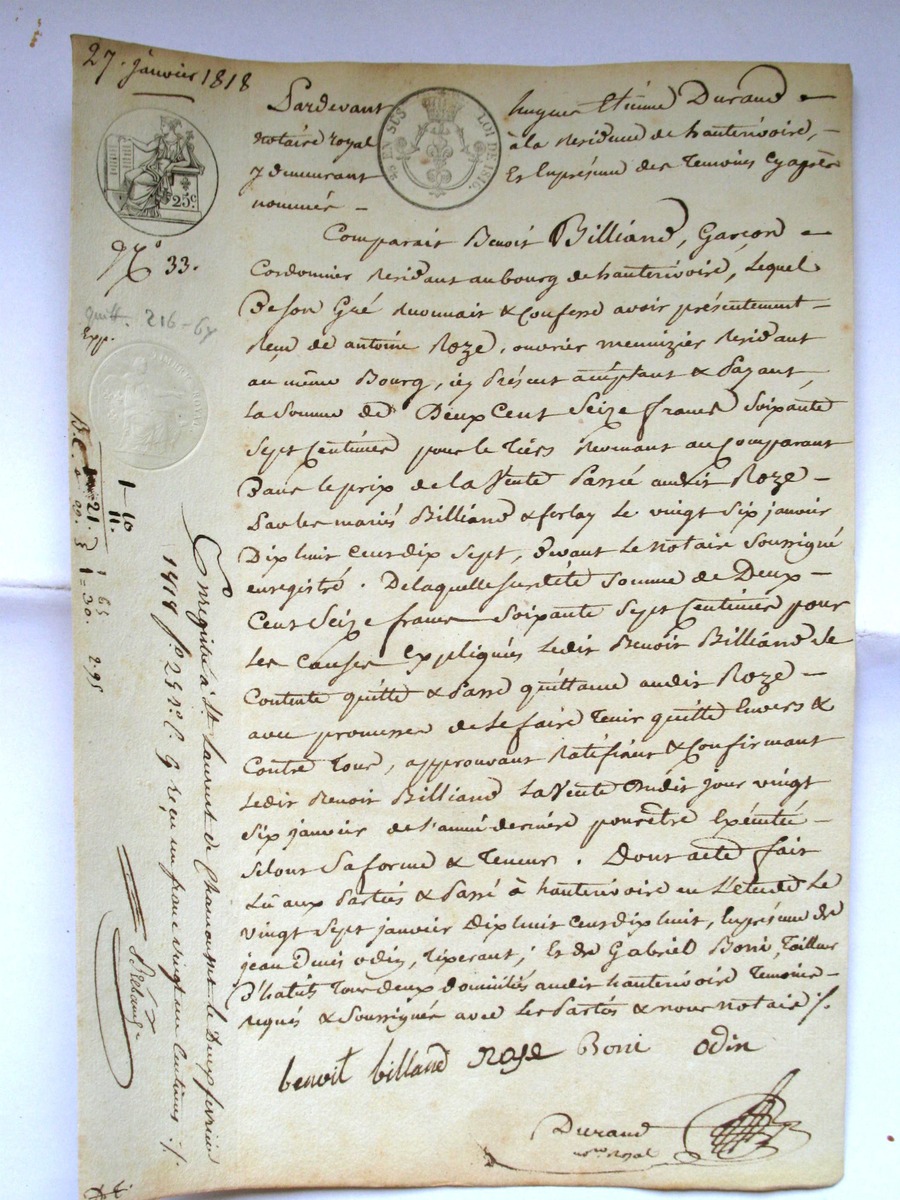 27. janvier 1818
Pardevant hugues Etiénne Durand
notaire royal à la Residence de hauterivoire,
y demeurant Et En présence des temoins Cy après
nommés
EN SUS LOI DE 1816.
25c
N° 33.
quitt. 216-67
Exp.
Comparait Benoit Billiand, Garçon
Cordonnier Residant au bourg de hauterivoire, Lequel
de son Gré Reconnait & Confesse avoir présentement
Reçu de antoine Roze, ouvrier menuizier Residant
au même Bourg, icy Présent acceptant & Payant,
La Somme de Deux Cent Seize francs Soixante
Sept Centimes pour le tiers Revenant au Comparant
Dans le prix de la Vente Passée audit Roze
Par les mariés Billiand & ferlay Le vingt Six janvier
Dix huit Cent dix Sept, devant Le notaire Soussigné
enregistré. De laquelle Susditte Somme de Deux
Cent Seize francs Soixante Sept Centimes pour
Les Causes Expliquées Ledit Benoit Billiand Se
Contente quitte & Passe quittance audit Roze
avec promesse de Le faire Tenir quitte Envers &
Contre Tous, approuvant Ratifiant & Confirmant
Ledit Benoit Billiand La Vente Dudit jour vingt
Six janvier de l'année derniére pour être Exécutée
Selont Sa forme & Teneur. Dont acte fait
Lû aux Parties & Passé à hauterivoire en L'etude Le
vingt Sept janvier Dix huit Cent dix huit, En présence de
jean Denis odin, tixerant; Et de Gabriel Boni, Tailleur
D'habits Tous deux domiciliés audit hauterivoire Temoins
requis & Soussignés avec Les Parties & nous notaire
benoit billand Roze Boni odin
Durand
nre Royal
1-10
11.
21.
1=30.
2.95
Enregistré à St Laurent de Chamousset le Deux fevrier
1818 fo 25 Vo C. 9 reçu un franc vingt un Centimes